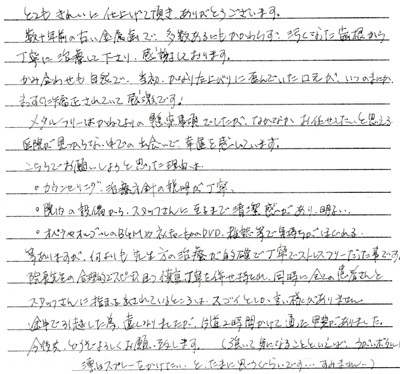 とてもきれいに仕上げて頂き、ありがとうございます。
数十年前の古い金属歯で、多数あるにもかかわらず、汚くなった歯根から
丁寧に治療して下さり、感謝しております。
かみ合わせも自然で、当初、かなり左上がりに歪んでいた口元が、いつのまにか
矯正されていて感激です！
メタルフリーはかねてよりの懸案事項でしたが、なかなかお任せしたいと思える
医院が見つからない中での出会いで、幸運を感じています。
こちらでお願いしようと思った理由は
・カウンセリング、治療方針の説明が丁寧、
・院内の設備から、スタッフさんに至るまで清潔感があり、明るい、
・オペラやオルゴールのBGMやDVD、雑誌等で気持ちがほぐれる、
等ありますが、何よりも先生方の治療が的確で丁寧でストレスフリーだった事です。
院長先生の合理的でスピーディ、且つ慎重丁寧を併せ持たれ、同時に全ての患者さんと
スタッフさんに指示されているところは、スゴイとしか言い様がありません。
途中で引越した為、遠くなりましたが、片道2時間かけて通った甲斐がありました。
今後共、どうぞよろしくお願い致します。（強いて気になることといえば、
スプレーをかけたい、と、たまに思うぐらいです…すみません〜）